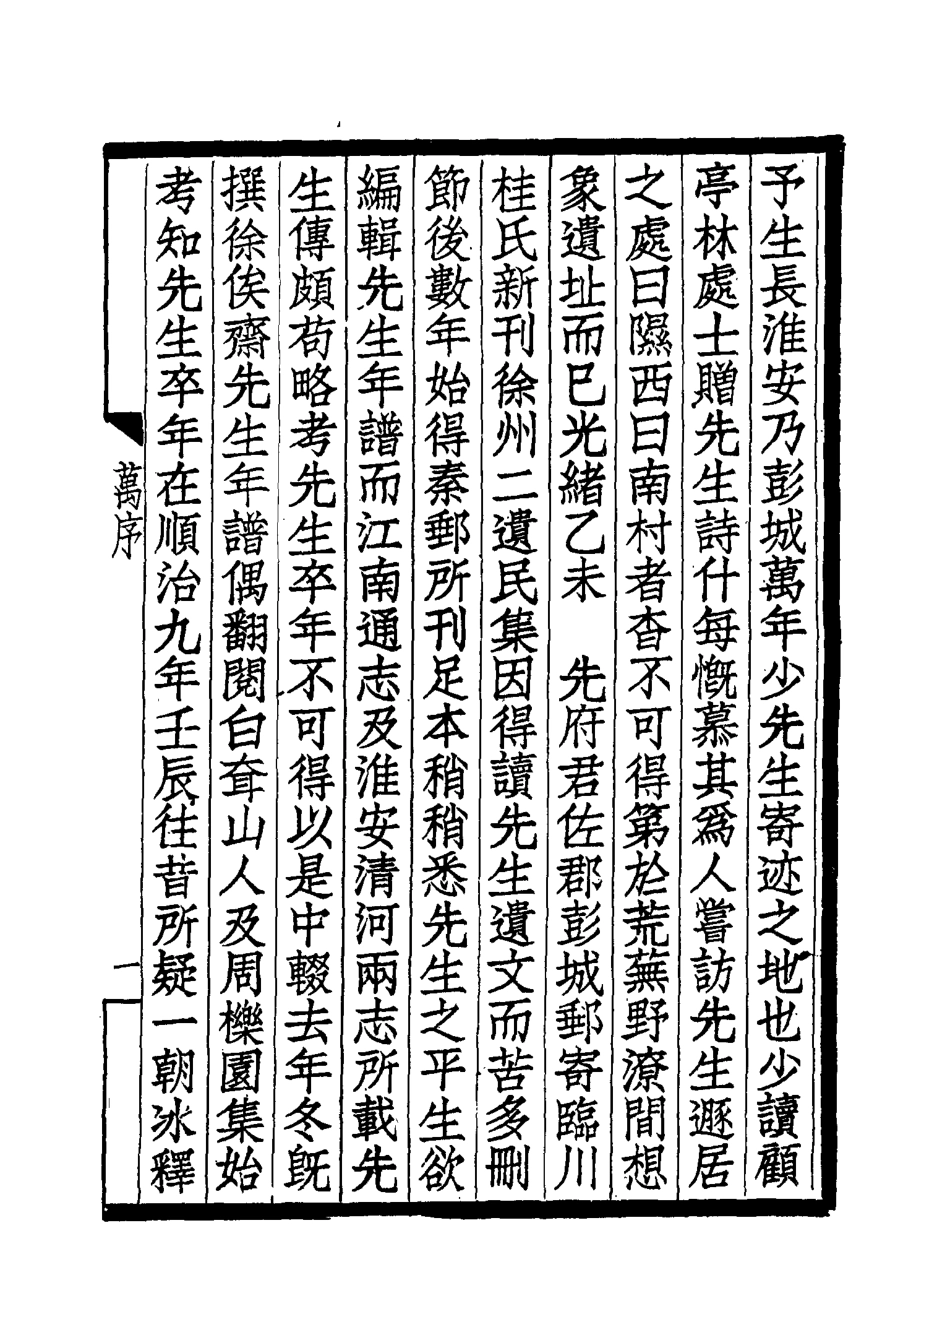 予生長淮安乃彭城萬年少先生寄迹之地也少讀顧
亭林處士贈先生詩什每慨慕其爲人嘗訪先生遯居
之處曰隰西曰南村者杳不可得第於荒蕪野潦間想
象遺址而已光緒乙未　先府君佐郡彭城郵寄臨川
桂氏新刊徐州二遺民集因得讀先生遺文而苦多刪
節後數年始得秦郵所刊足本稍稍悉先生之平生欲
編輯先生年譜而江南通志及淮安清河兩志所載先
生傳頗苟略考先生卒年不可得以是中輟去年冬旣
撰徐俟齋先生年譜偶翻閱白耷山人及周櫟園集始
考知先生卒年在順治九年壬辰往昔所疑一朝冰釋
萬序
一